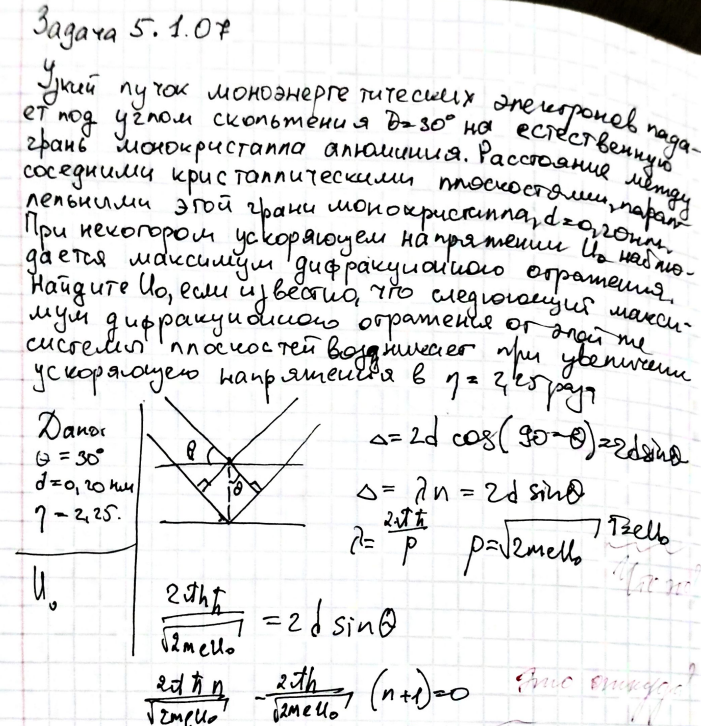 Задача 5.1.07
Узкий пучок моноэнергетических электронов пада-
ет под углом скольжения θ=30° на естественную
грань монокристалла алюминия. Расстояние между
соседними кристаллическими плоскостями, парал-
лельными этой грани монокристалла, d=0,20нм.
При некотором ускоряющем напряжении U₀ наблю-
дается максимум дифракционного отражения.
Найдите U₀, если известно, что следующий макси-
мум дифракционного отражения от этой же
системы плоскостей возникает при увеличении
ускоряющего напряжения в η = 2,25 раза
Дано:
θ = 30°
d=0,20 нм
η = 2,25.
U₀
θ
θ
Δ=2d cos(90-θ)=2dsinθ
Δ= λn = 2d sinθ
λ= 2πħ/p p=√2meU₀ T=eU₀
2πħn/√2meU₀ = 2d sinθ
2πħn/√2meU₀ - 2πħ/√2meU₀ (n+1)=0
Это откуда?